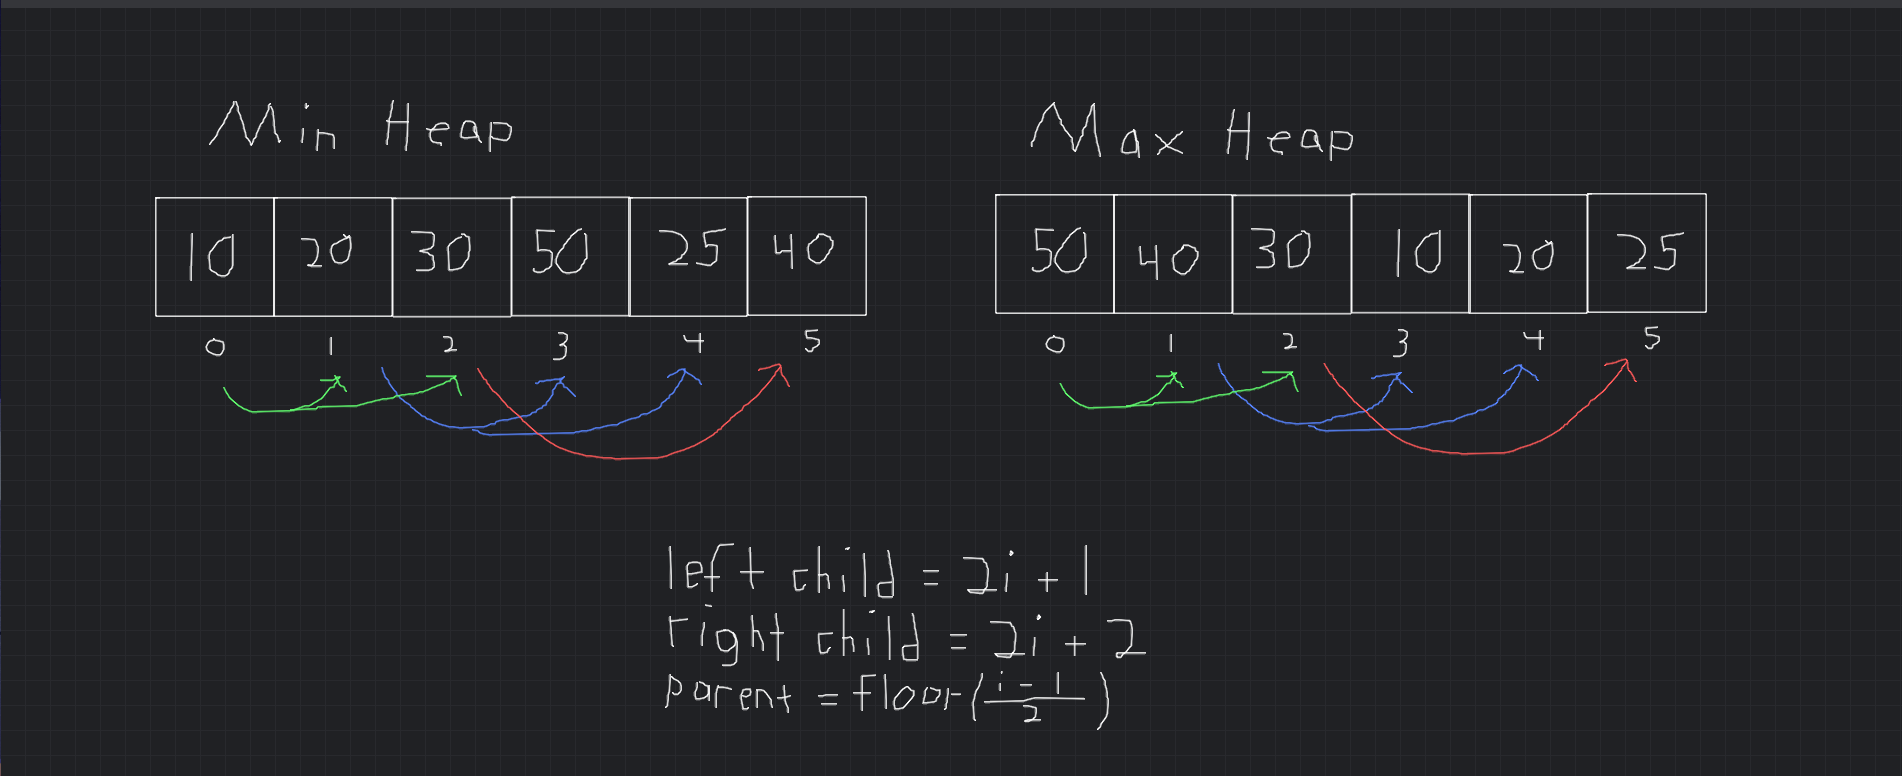 Min Heap
10 20 30 50 25 40
0 1 2 3 4 5
Max Heap
50 40 30 10 20 25
0 1 2 3 4 5
left child = 2i + 1
right child = 2i + 2
parent = floor(i - 1 / 2)